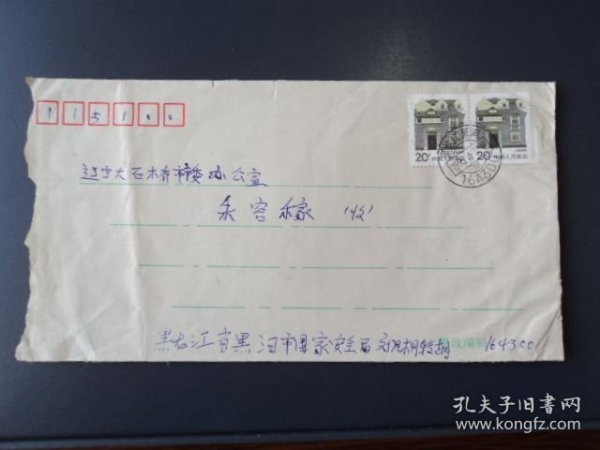 115100
20分 中国人民邮政 20分 中国人民邮政
164300
辽宁大石桥市委办公室
朱容稼 (收)
黑龙江省黑河市国家安全局
邮政编码 164300
孔夫子旧书网
www.kongfz.com